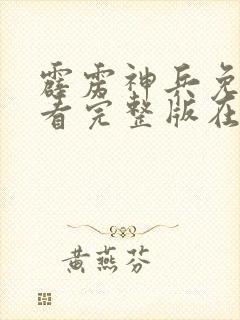 霹雳神兵免
看完整版在
黄燕芬